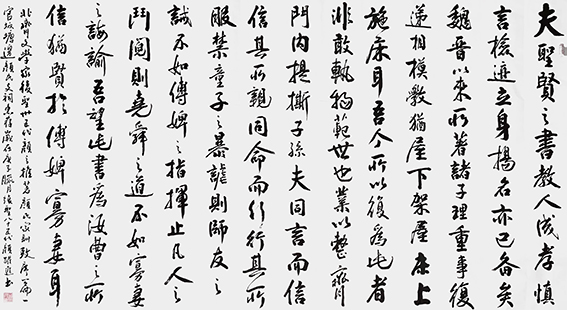 夫聖賢之書教人成孝慎
言檢迹立身揚名亦已備矣
魏晉以來所著諸子理重事復
遞相模斅猶屋下架屋床上
施床耳吾今所以復為此者
非敢軌物範世也業以整齊
門內提撕子孫夫同言而信
信其所親同命而行行其所
服禁童子之暴謔則師友之
誡不如傅婢之指揮止凡人之
鬥鬩則堯舜之道不如寡妻
之誨諭吾望此書為汝曹之所
信猶賢於傅婢寡妻耳
北齊文學家復聖卅五代顏之推著顏氏家訓序一篇
顏氏文祠歲在庚子臘月復聖八十五代顏書